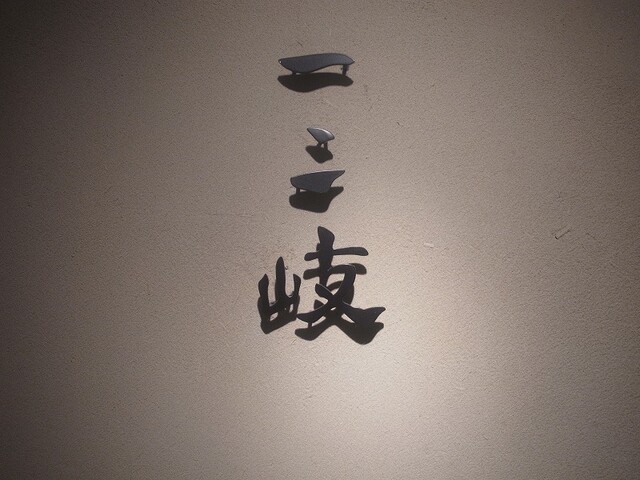 一二岐